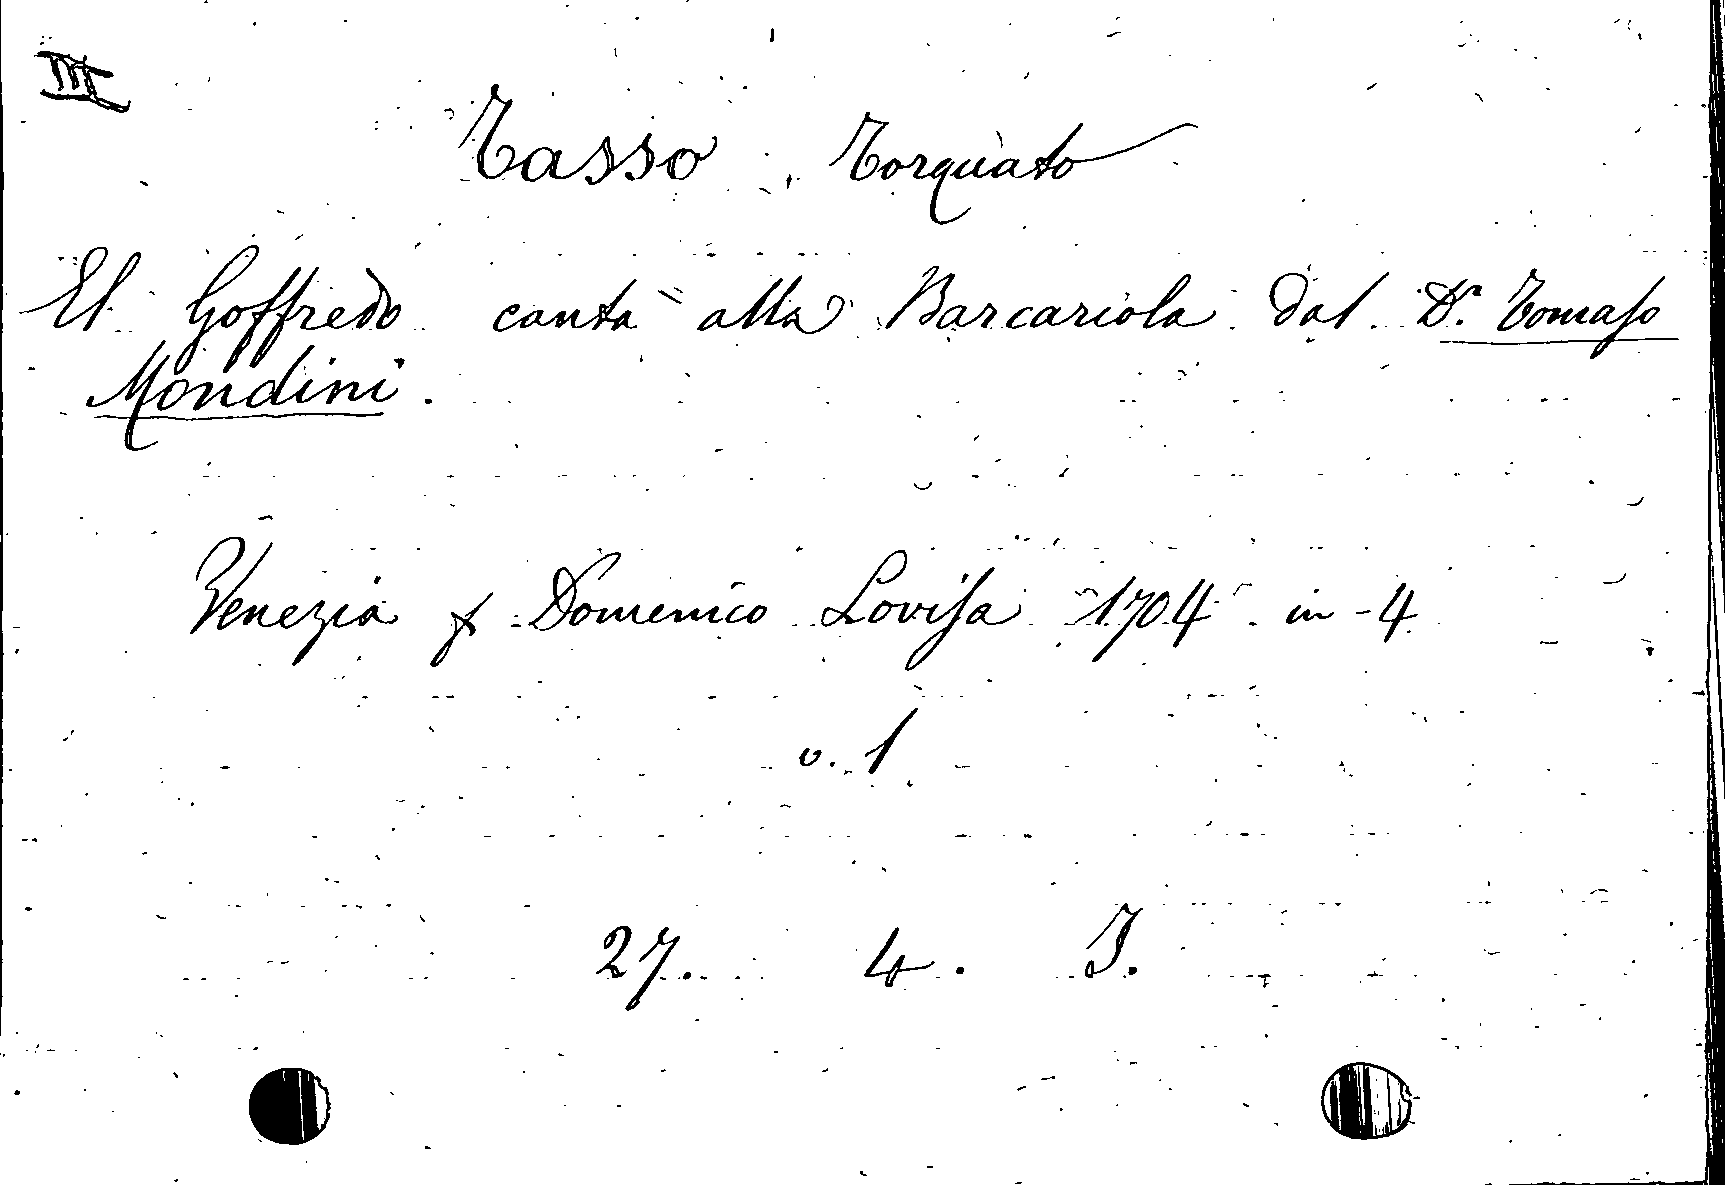 III
Tasso, Torquato
El Goffredo canta alla Barcariola dal Dr. Tomaso
Mondini.
Venezia Domenico Lovisa 1704 in-4
v. 1
27. 4. I.